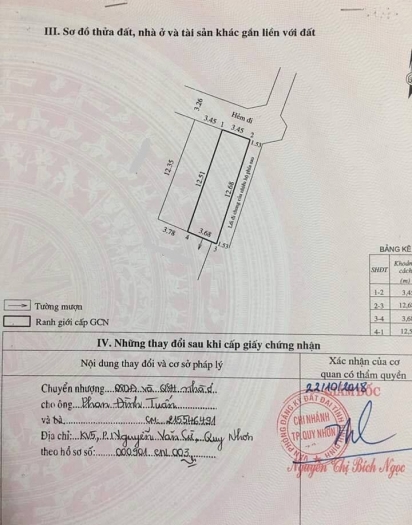 III. Sơ đồ thửa đất, nhà ở và tài sản khác gắn liền với đất
Hẻm đi
3.26
3.45 1 3.45 2
1.53
12.35
12.51
12.68
Lối đi chung của nhà
3.78 4 3.68 3 1.53
BẢNG KÊ
SHĐT Khoản
cách
(m)
1-2 3,4
2-3 12,6
3-4 3,6
4-1 12,5
Tường mượn
Ranh giới cấp GCN
IV. Những thay đổi sau khi cấp giấy chứng nhận
Nội dung thay đổi và cơ sở pháp lý
Xác nhận của cơ
quan có thẩm quyền
Chuyển nhượng QSDĐ và QSH nhà ở
22/10/2018
GIÁM ĐỐC
cho ông Phan Đình Tuấn
và bà CM 215546491
Địa chỉ: KV5, P. Nguyễn Văn Cừ, Quy Nhơn
theo hồ sơ số: 000901 CNL 003
VĂN PHÒNG ĐĂNG KÝ ĐẤT ĐAI TỈNH
CHI NHÁNH
TP. QUY NHƠN
Nguyễn Thị Bích Ngọc